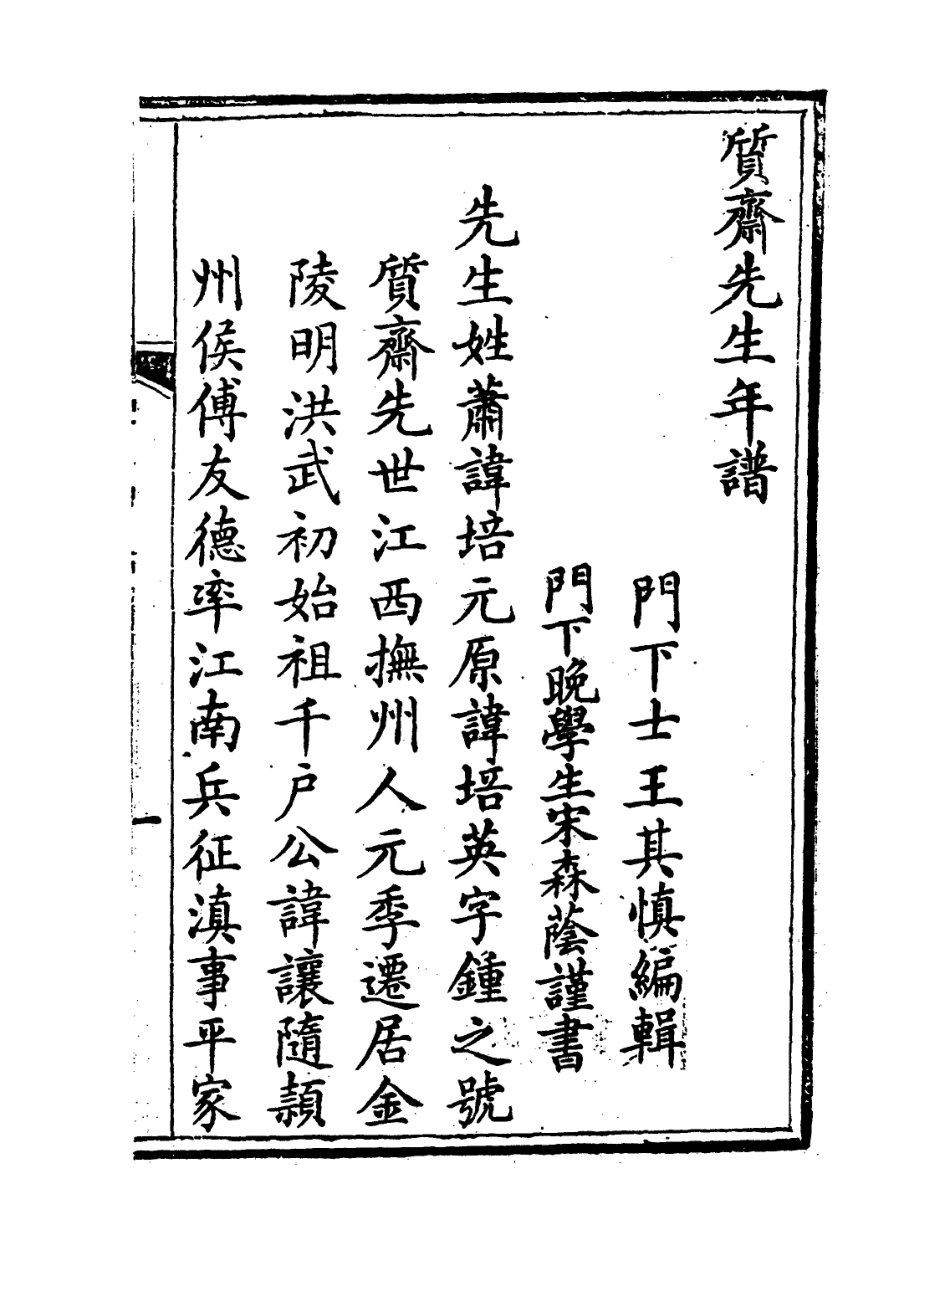 質齋先生年譜
門下士王其慎編輯
門下晚學生宋森蔭謹書
先生姓蕭諱培元原諱培英字鍾之號
質齋先世江西撫州人元季遷居金
陵明洪武初始祖千户公諱讓隨頴
州侯傅友德率江南兵征滇事平家
一